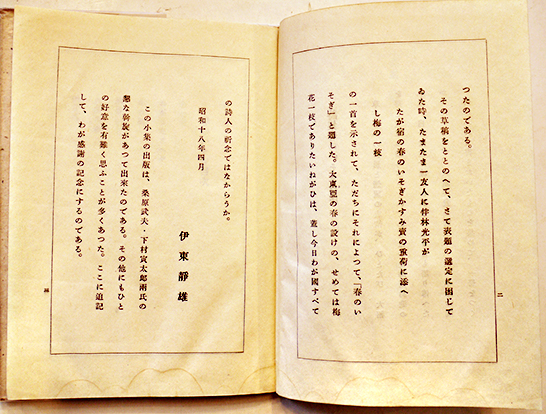 つたのである。
その草稿をととのへて、さて表題の選定に困じて
ゐた時、たまたま一友人に伴林光平が
たが宿の春のいそぎかすみ賣の重荷に添へ
し梅の一枝
の一首を示されて、ただちにそれによつて、「春のい
そぎ」と題した。大東亞の春の設けの、せめては梅
花一枝でありたいねがひは、蓋し今日わが國すべて
二
の詩人の祈念ではなからうか。
昭和十八年四月
伊東靜雄
この小集の出版は、桑原武夫・下村寅太郎兩氏の
懇な斡旋があつて出來たのである。その他にもひと
の好意を有難く思ふことが多くあつた。ここに追記
して、わが感謝の記念にするのである。